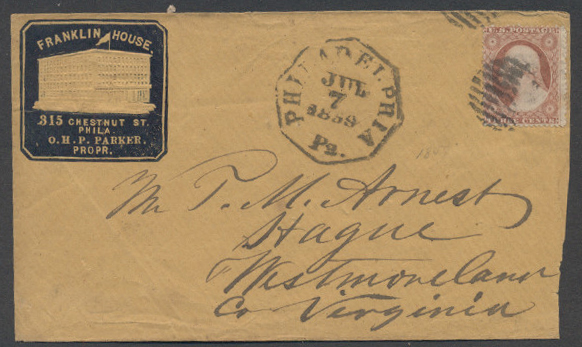 FRANKLIN HOUSE,
315 CHESTNUT ST.
PHILA.
O.H.P. PARKER,
PROPR.
PHILADELPHIA
JUL
7
Pa.
U.S. POSTAGE
CENTS
Mr T. M. Arnest
Hague
Westmoreland
Co Virginia